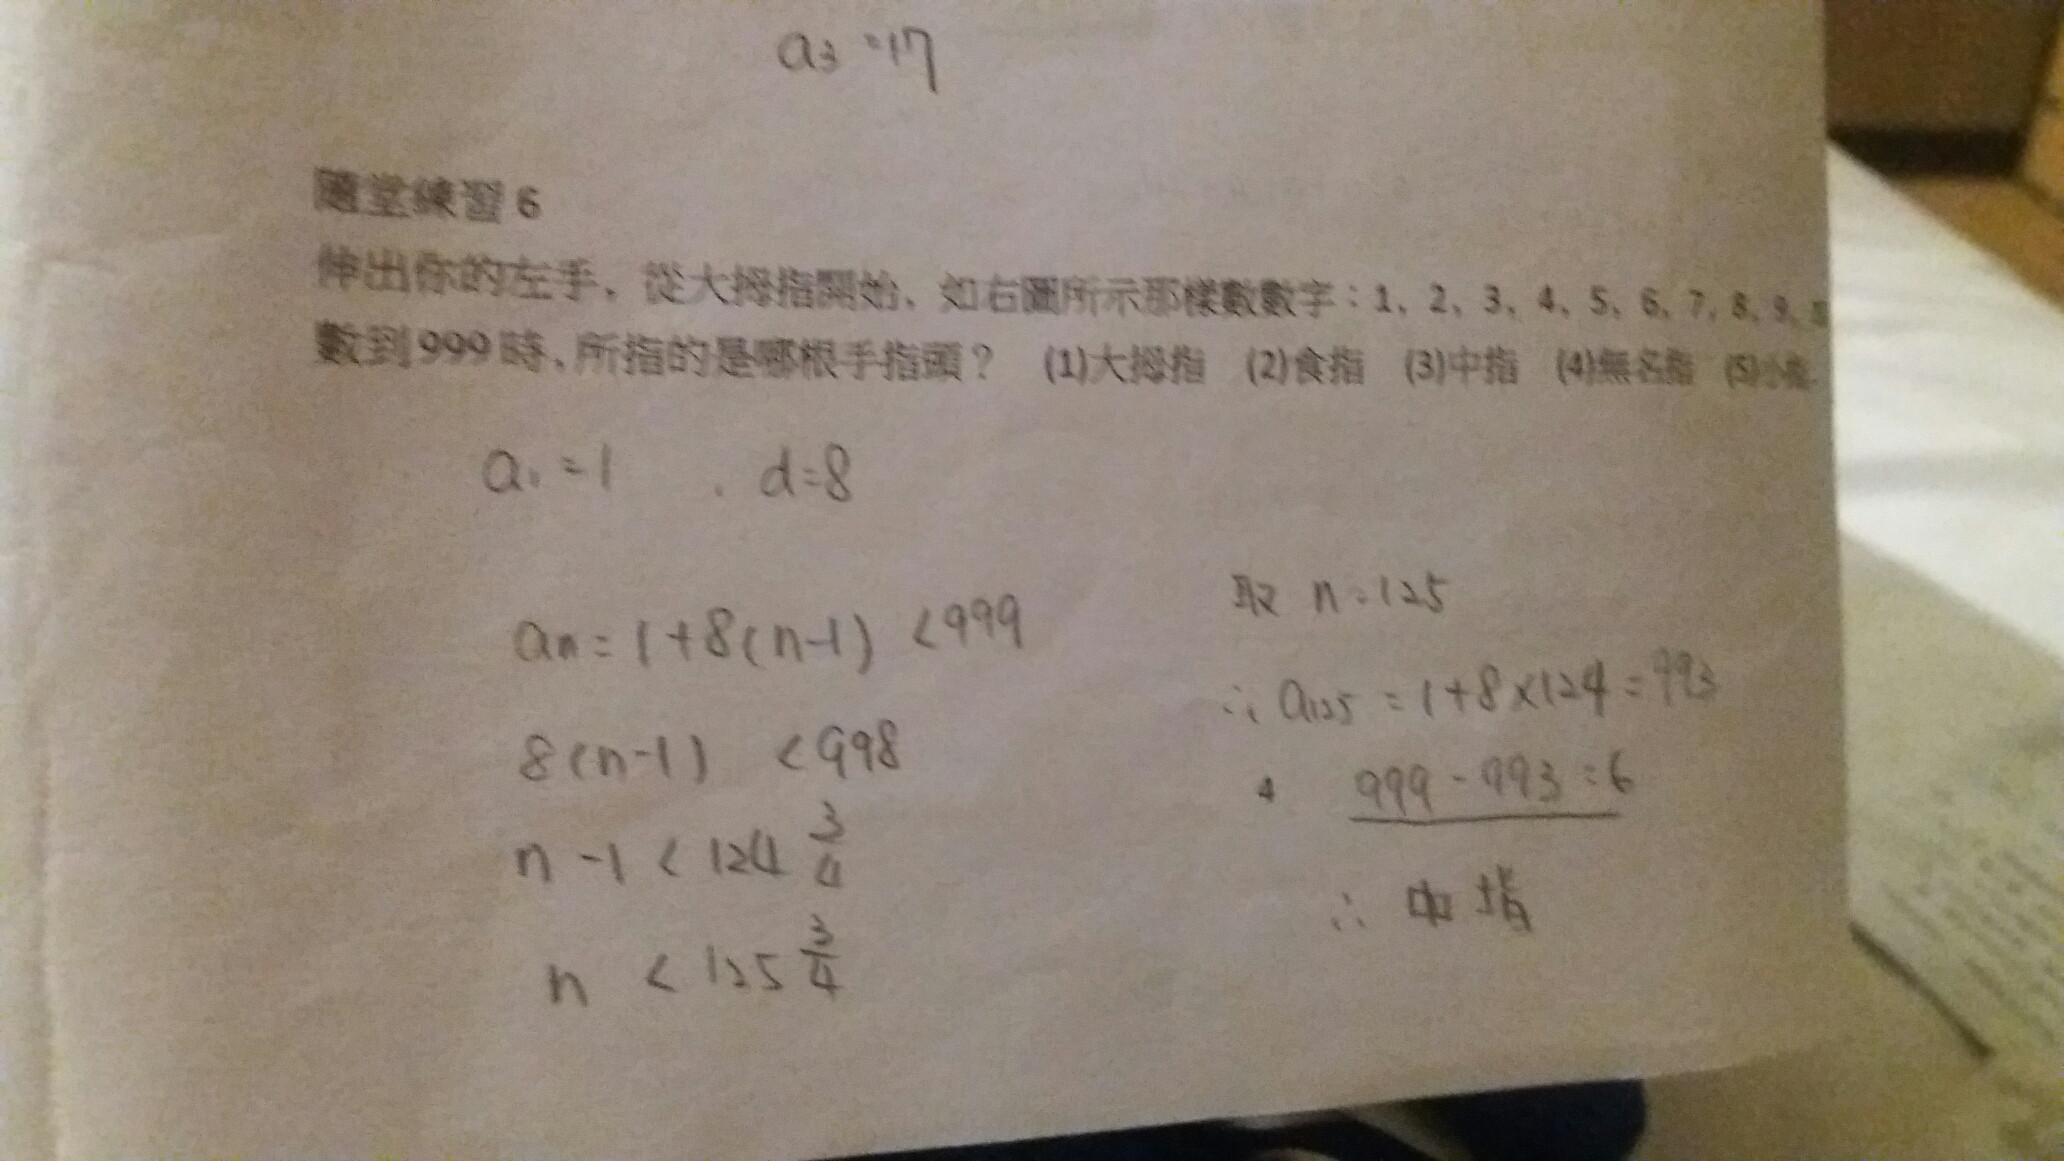 a₃=17
隨堂練習 6
伸出你的左手，從大拇指開始，如右圖所示那樣數數字：1，2，3，4，5，6，7，8，9，
數到 999 時，所指的是哪根手指頭？ (1)大拇指 (2)食指 (3)中指 (4)無名指 (5)小指
a₁=1 . d=8
aₙ=1+8(n-1) <999
8(n-1) <998
n-1 < 124 3/4
n < 125 3/4
取 n=125
∴ a₁₂₅ = 1+8×124=993
999-993=6
∴ 中指